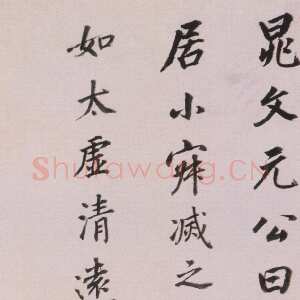 晁文元公曰
居小寐滅之
如太虛清遠
Shufawang.CN